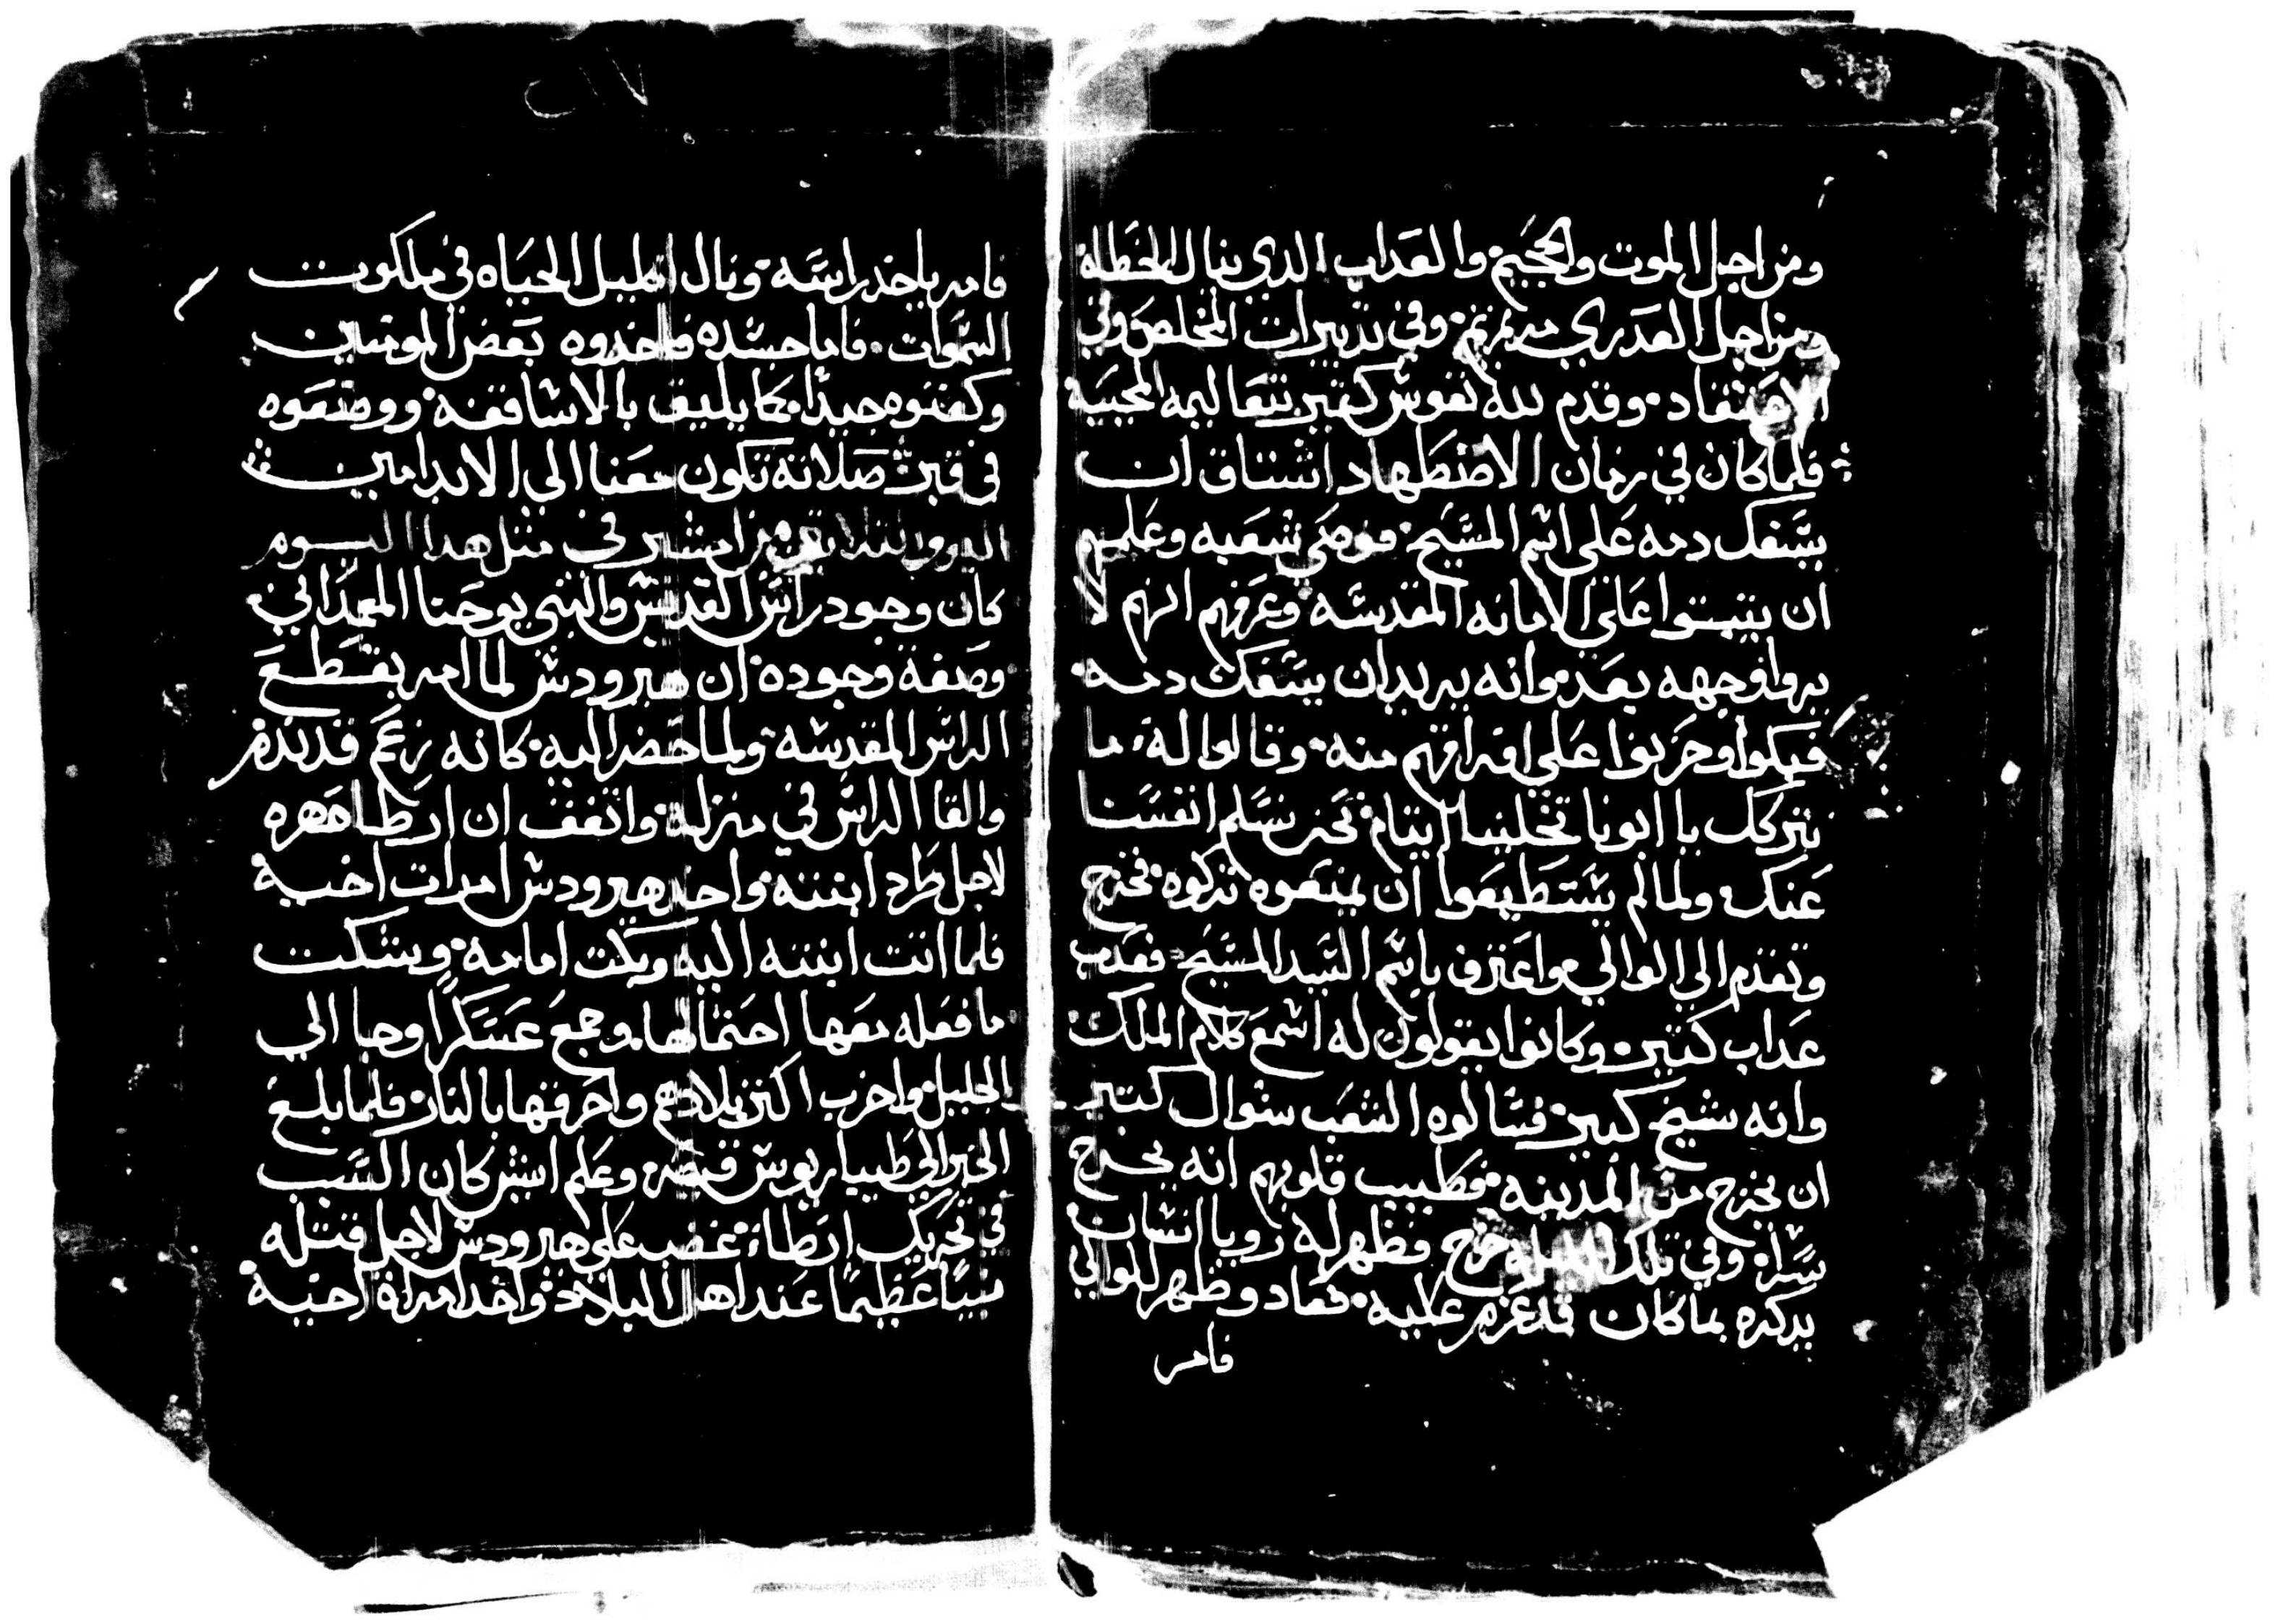 ومن اجل الموت والجحيم والعداب الدي ينال الخطاه
ومن اجل العدري مرتمريم وفي تدبيرات المخلص وفي
الاعتقاد وقدم لله نفوس كتير بتعاليمه المحييه
فلما كان في زمان الاضطهاد اشتاق ان
يسفك دمه على اسم المسيح فوصى شعبه وعلمهم
ان يتبتوا على الامانه المقدسه وعرفهم انهم لا
يروا وجهه بعد وانه يريد ان يسفك دمه
فبكوا وحزنوا على افتراقهم منه وقالوا له ما
نتركك يا ابونا تخلينا ايتام نحن نسلم انفسنا
عنك ولما لم يستطيعوا ان يمنعوه تركوه فخرج
وتقدم الي الوالي واعترف باسم السيد المسيح فعدب
عداب كتير وكانوا يقولون له اسمع كلام الملك
وانه شيخ كبير فسالوه الشعب سوال كتير
ان يخرج من المدينه فطيب قلوبهم انه يخرج
سرا وفي تلك الليله خرج فظهر له رويا انسان
يدكره بما كان قد عزم عليه فعاد وظهر للوالي
فامر
فامر باخد راسه ونال اكليل الحياه في ملكوت
السموات فاما جسده فاخدوه بعض المومنين
وكفنوه جيدا كما يليق بالاساقفه ووضعوه
في قبر صلاته تكون معنا الي الابد امين
اليوم التلاتين من امشير في متل هدا اليوم
كان وجود راس القديس والنبي يوحنا المعمداني
وصفة وجوده ان هيرودس لما امر بقطع
الراس المقدسه ولما حضر اليه كانه زعم قد ندم
والقا الراس في منزله واتفق ان ارطا صهره
لاجل طرد ابنته واخد هيرودس امرات اخيه
فلما اتت ابنته اليه وبكت امامه وشكت
ما فعله معها احتمالها وجمع عسكرا وجا الي
الجليل واخرب اكتر بلادهم واحرقها بالنار فلما بلغ
الخبر الي طيباريوس قيصر وعلم ايش كان السبب
في تحريك ارطا غضب على هيرودس لاجل قتله
نبيا عظيما عند اهل البلاد واخد امراة اخيه